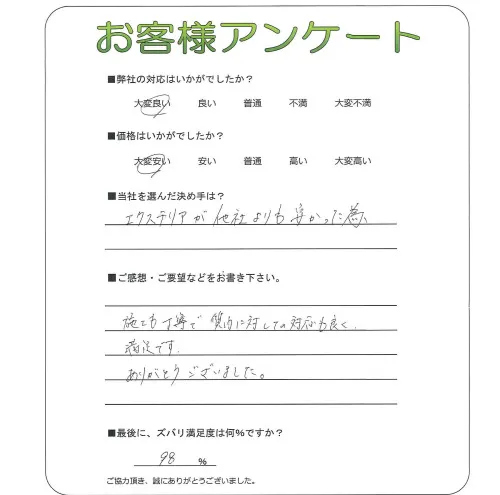 お客様アンケート
■弊社の対応はいかがでしたか？
大変良い 良い 普通 不満 大変不満
■価格はいかがでしたか？
大変安い 安い 普通 高い 大変高い
■当社を選んだ決め手は？
エクステリアが他社よりも安かった為、
■ご感想・ご要望などをお書き下さい。
施工も丁寧で 質問に対しての対応も良く、
満足です。
ありがとうございました。
■最後に、ズバリ満足度は何％ですか？
98 ％
ご協力頂き、誠にありがとうございました。